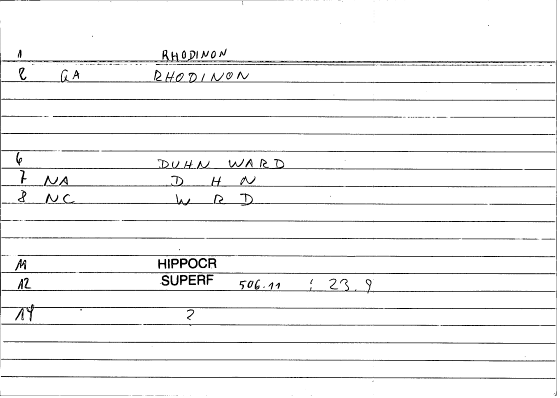 1 RHODINON
2 GA RHODINON
6 DUHN WARD
7 NA D H N
8 NC W R D
11 HIPPOCR
12 SUPERF 506.11 : 23.9
14 2